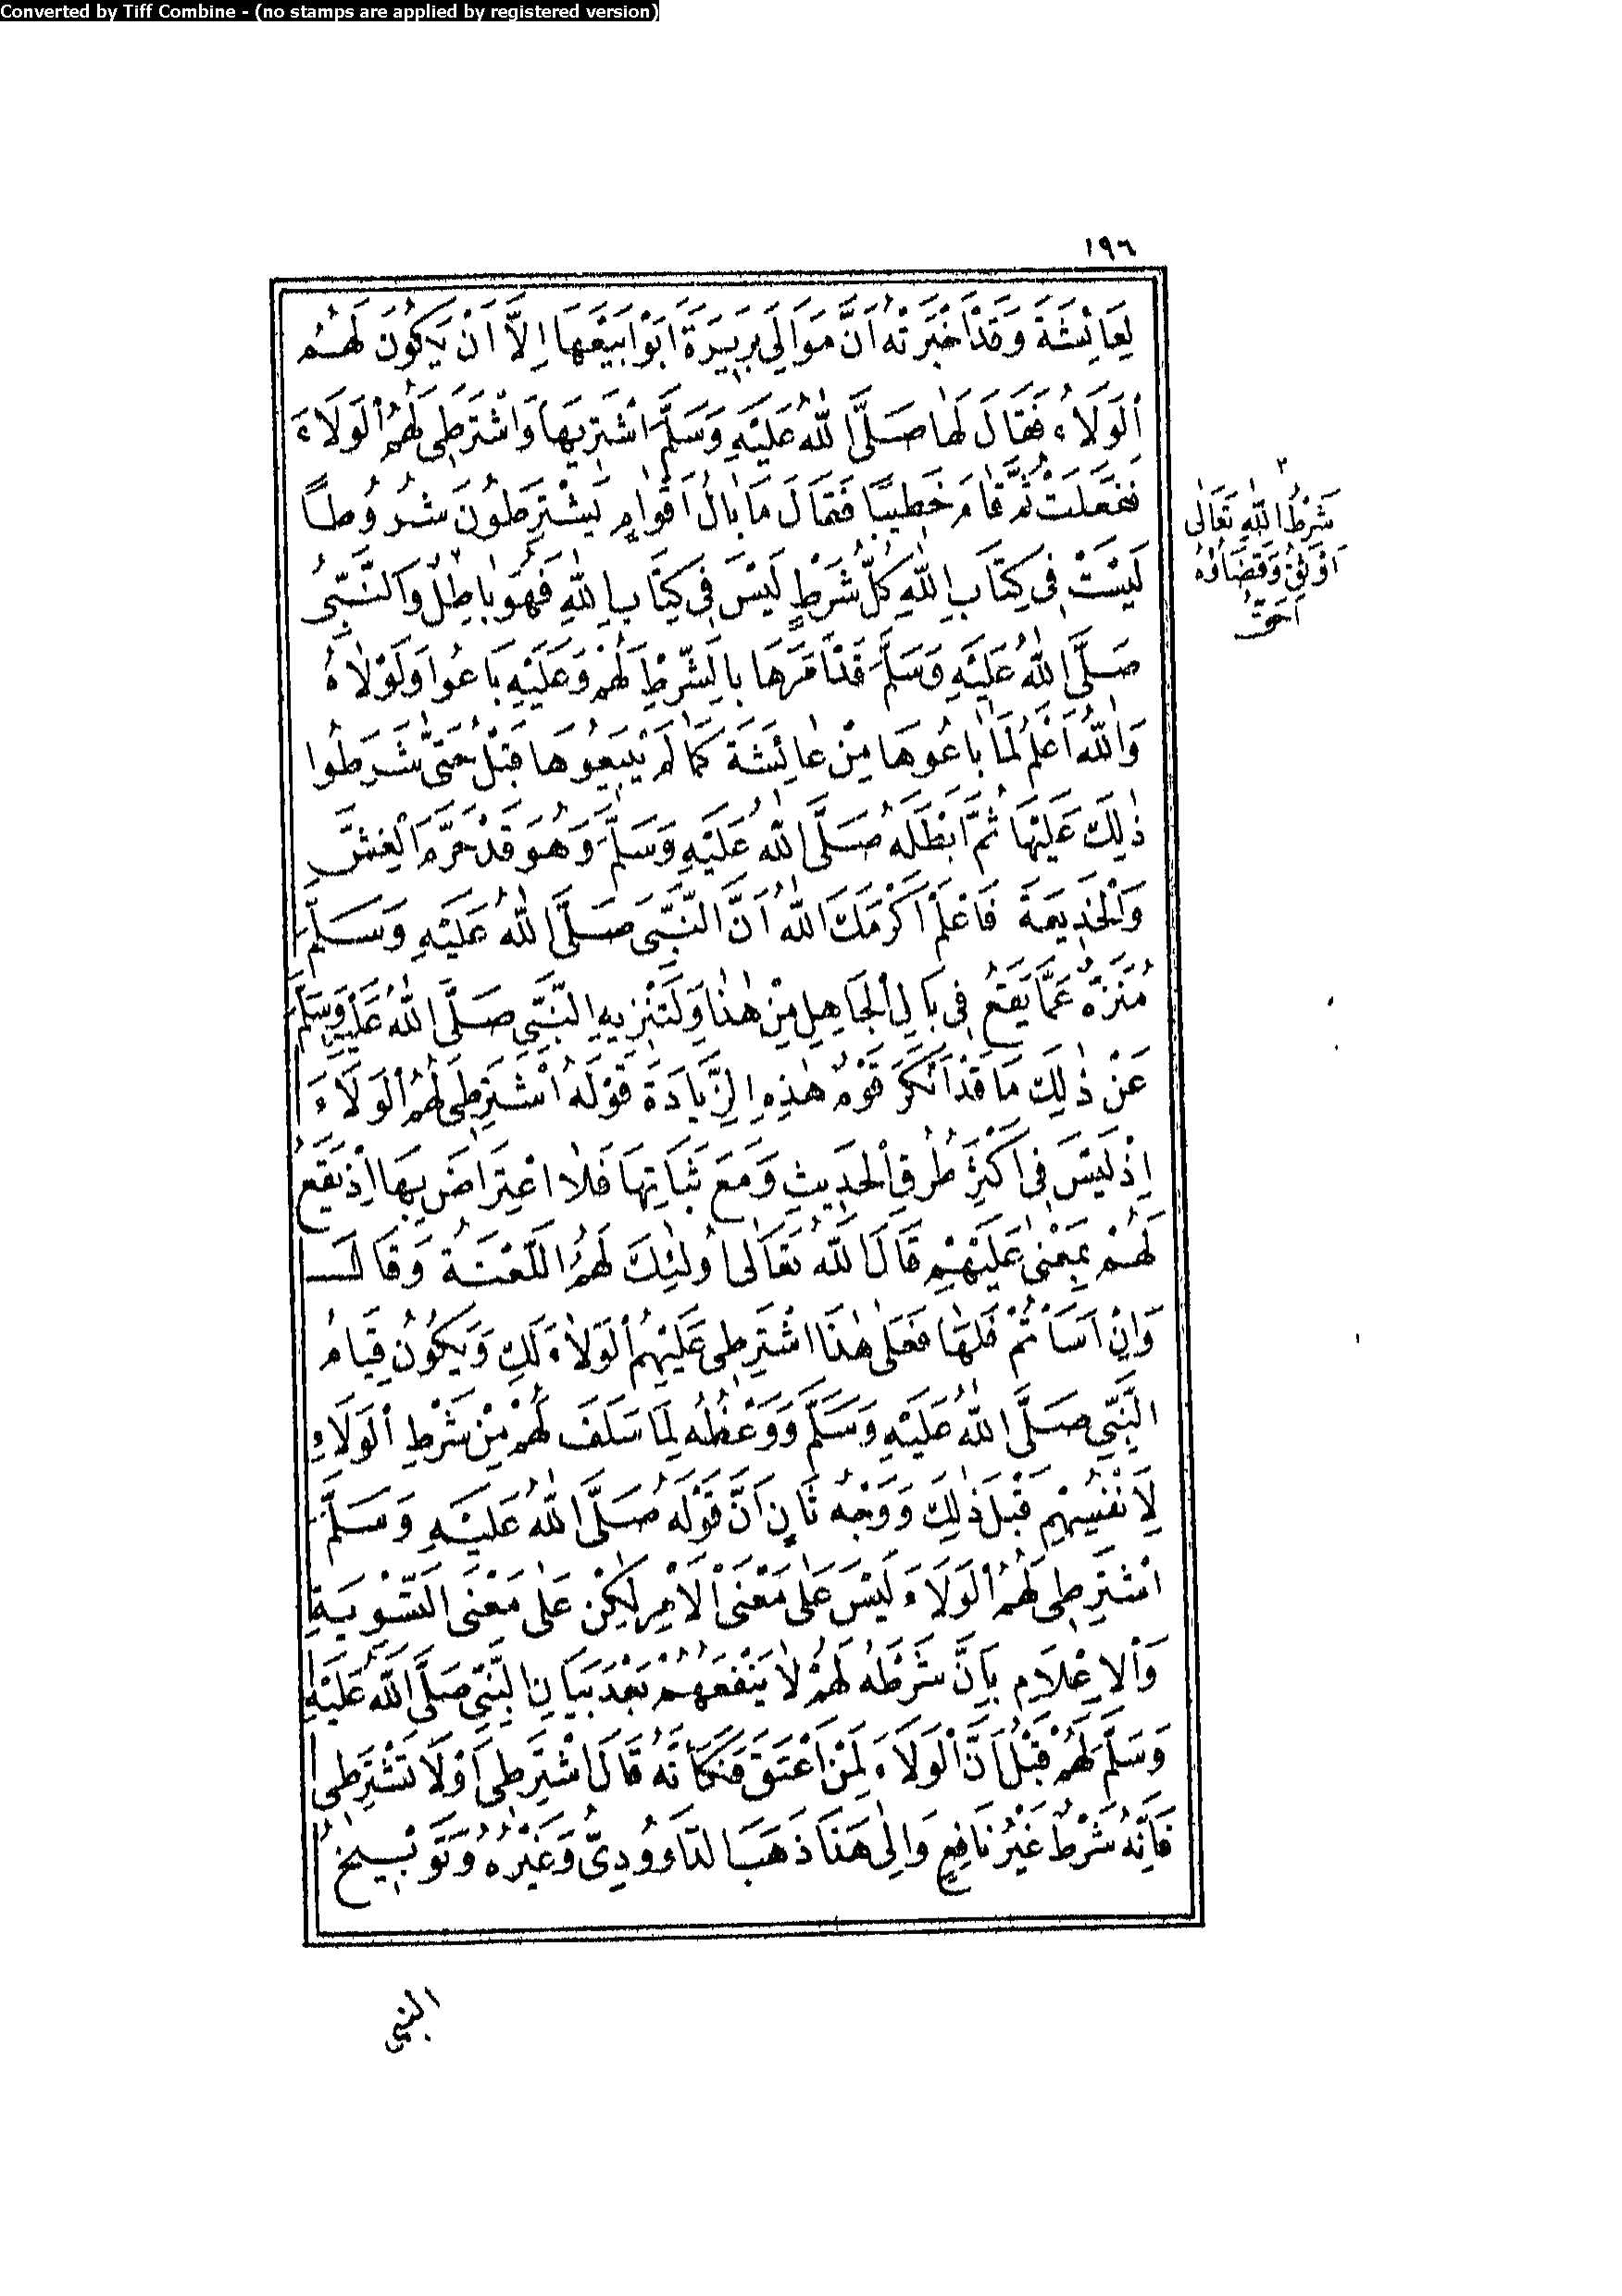 Converted by Tiff Combine - (no stamps are applied by registered version)
١٩٦
لِعَائِشَةَ وَقَدْ اَخْبَرَتْهُ اَنَّ مَوَالِىَ بَرِيرَةَ اَبَوْا بَيْعَهَا اِلَّا اَنْ يَكُونَ لَهُمُ
اَلْوَلَاءُ فَقَالَ لَهَا صَلَّى اللّٰهُ عَلَيْهِ وَسَلَّمَ اشْتَرِيهَا وَاشْتَرِطِى لَهُمُ اَلْوَلَاءَ
فَفَعَلَتْ ثُمَّ قَامَ خَطِيبًا فَقَالَ مَا بَالُ اَقْوَامٍ يَشْتَرِطُونَ شُرُوطًا
لَيْسَتْ فِى كِتَابِ اللّٰهِ كُلُّ شَرْطٍ لَيْسَ فِى كِتَابِ اللّٰهِ فَهُوَ بَاطِلٌ ٢ وَالنَّبِىُّ
صَلَّى اللّٰهُ عَلَيْهِ وَسَلَّمَ قَدْ اَمَرَهَا بِالشَّرْطِ لَهُمْ وَعَلَيْهِ بَاعُوا وَلَوْلَاهُ
وَاللّٰهُ اَعْلَمُ لَمَا بَاعُوهَا مِنْ عَائِشَةَ كَمَا لَمْ يَبِيعُوهَا قَبْلُ حَتّٰى شَرَطُوا
ذٰلِكَ عَلَيْهَا ثُمَّ اَبْطَلَهُ صَلَّى اللّٰهُ عَلَيْهِ وَسَلَّمَ وَهُوَ قَدْ حَرَّمَ الْغِشَّ
وَالْخَدِيعَةَ فَاعْلَمْ اَكْرَمَكَ اللّٰهُ اَنَّ النَّبِىَّ صَلَّى اللّٰهُ عَلَيْهِ وَسَلَّمَ
مُنَزَّهٌ عَمَّا يَقَعُ فِى بَالِ الْجَاهِلِ مِنْ هٰذَا وَلِتَنْزِيهِ النَّبِىِّ صَلَّى اللّٰهُ عَلَيْهِ وَسَلَّمَ
عَنْ ذٰلِكَ مَا قَدْ اَنْكَرَ قَوْمٌ هٰذِهِ الزِّيَادَةَ قَوْلَهُ اشْتَرِطِى لَهُمُ اَلْوَلَاءَ
اِذْ لَيْسَ فِى اَكْثَرِ طُرُقِ الْحَدِيثِ وَمَعَ ثَبَاتِهَا فَلَا اعْتِرَاضَ بِهَا اِذْ يَقَعُ
لَهُمْ بِمَعْنٰى عَلَيْهِمْ قَالَ اللّٰهُ تَعَالٰى اُولٰئِكَ لَهُمُ اللَّعْنَةُ وَقَالَ
وَاِنْ اَسَأْتُمْ فَلَهَا فَعَلٰى هٰذَا اشْتَرِطِى عَلَيْهِمُ اَلْوَلَاءَ لَكِ وَيَكُونُ قِيَامُ
النَّبِىِّ صَلَّى اللّٰهُ عَلَيْهِ وَسَلَّمَ وَوَعْظُهُ لِمَا سَلَفَ لَهُمْ مِنْ شَرْطِ اَلْوَلَاءِ
لِاَنْفُسِهِمْ قَبْلَ ذٰلِكَ وَوَجْهٌ ثَانٍ اَنَّ قَوْلَهُ صَلَّى اللّٰهُ عَلَيْهِ وَسَلَّمَ
اشْتَرِطِى لَهُمُ اَلْوَلَاءَ لَيْسَ عَلٰى مَعْنَى الْاَمْرِ لٰكِنْ عَلٰى مَعْنَى التَّسْوِيَةِ
وَالْاِعْلَامِ بِاَنَّ شَرْطَهُ لَهُمْ لَا يَنْفَعُهُمْ بَعْدَ بَيَانِ النَّبِىِّ صَلَّى اللّٰهُ عَلَيْهِ
وَسَلَّمَ لَهُمْ قَبْلُ اَنَّ الْوَلَاءَ لِمَنْ اَعْتَقَ فَكَاَنَّهُ قَالَ اشْتَرِطِى اَوْلَا تَشْتَرِطِى
فَاِنَّهُ شَرْطٌ غَيْرُ نَافِعٍ وَاِلٰى هٰذَا ذَهَبَ الدَّاوُودِىُّ وَغَيْرُهُ وَتَوْبِيخُ
٢
شَرْطُ اللّٰهِ تَعَالٰى
اَوْثَقُ وَقَضَاؤُهُ
اَحَقُّ
النبى